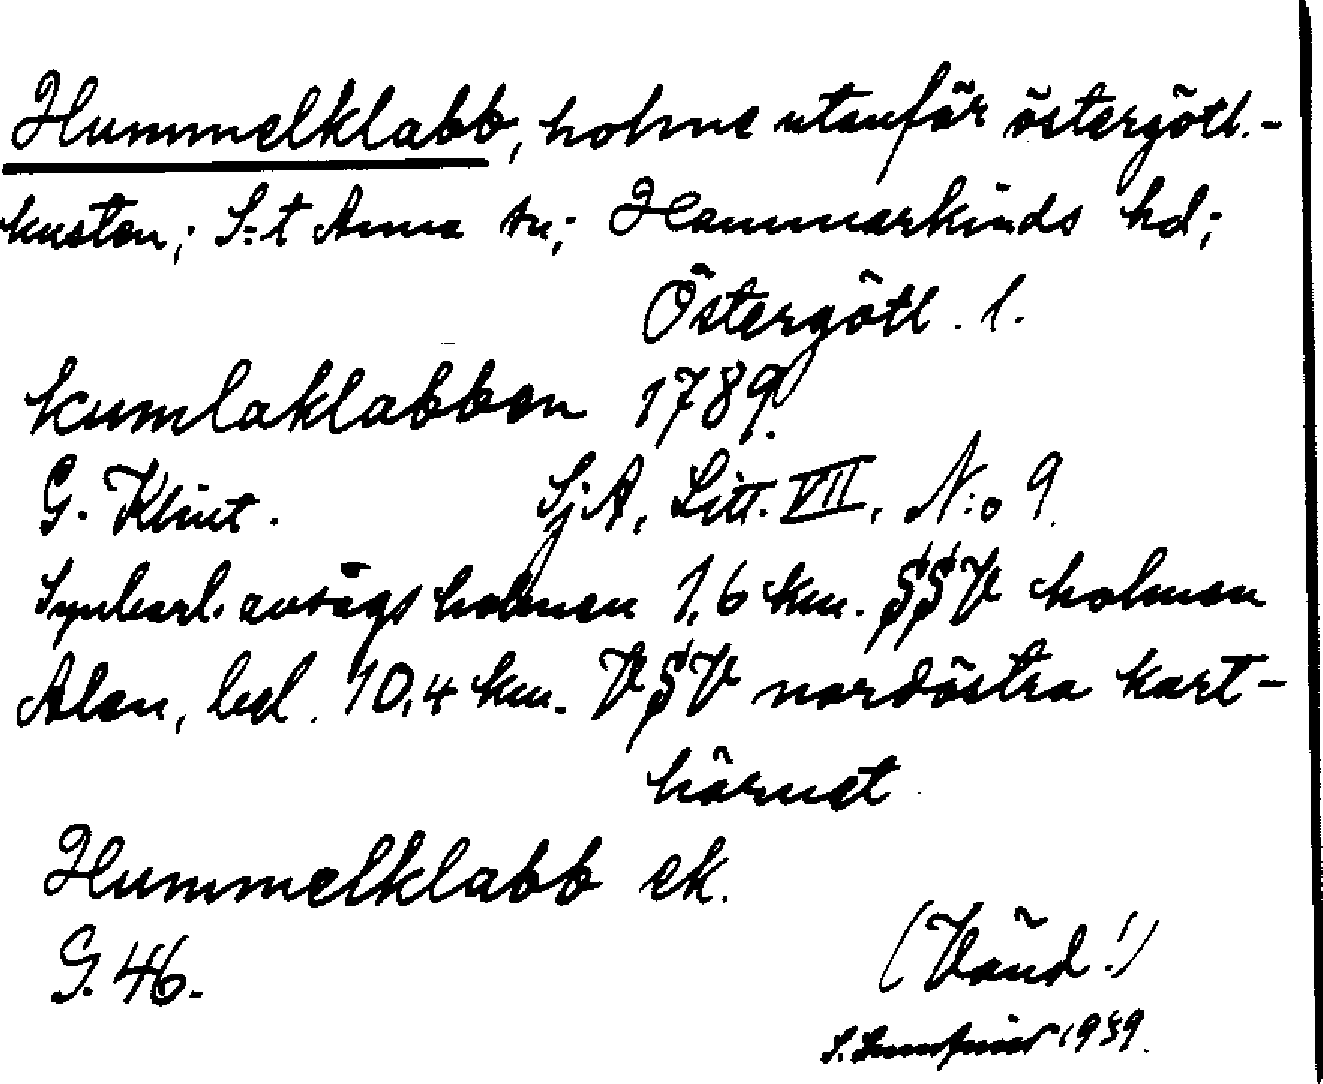 Hummelklabb, holme utanför östergötl.-
kusten; S:t Anna sn; Hammarkinds hd;
Östergötl. l.
Kumlaklabben 1789.
G. Klint. SjA, Litt. VII, N:o 9.
Synbarl. avsågs holmen 1,6 km. SSV holmen
Alen, bel. 10,4 km. VSV nordöstra kart-
hörnet.
Hummelklabb ek.
G. 46.
(Vänd!)
S. 1939.